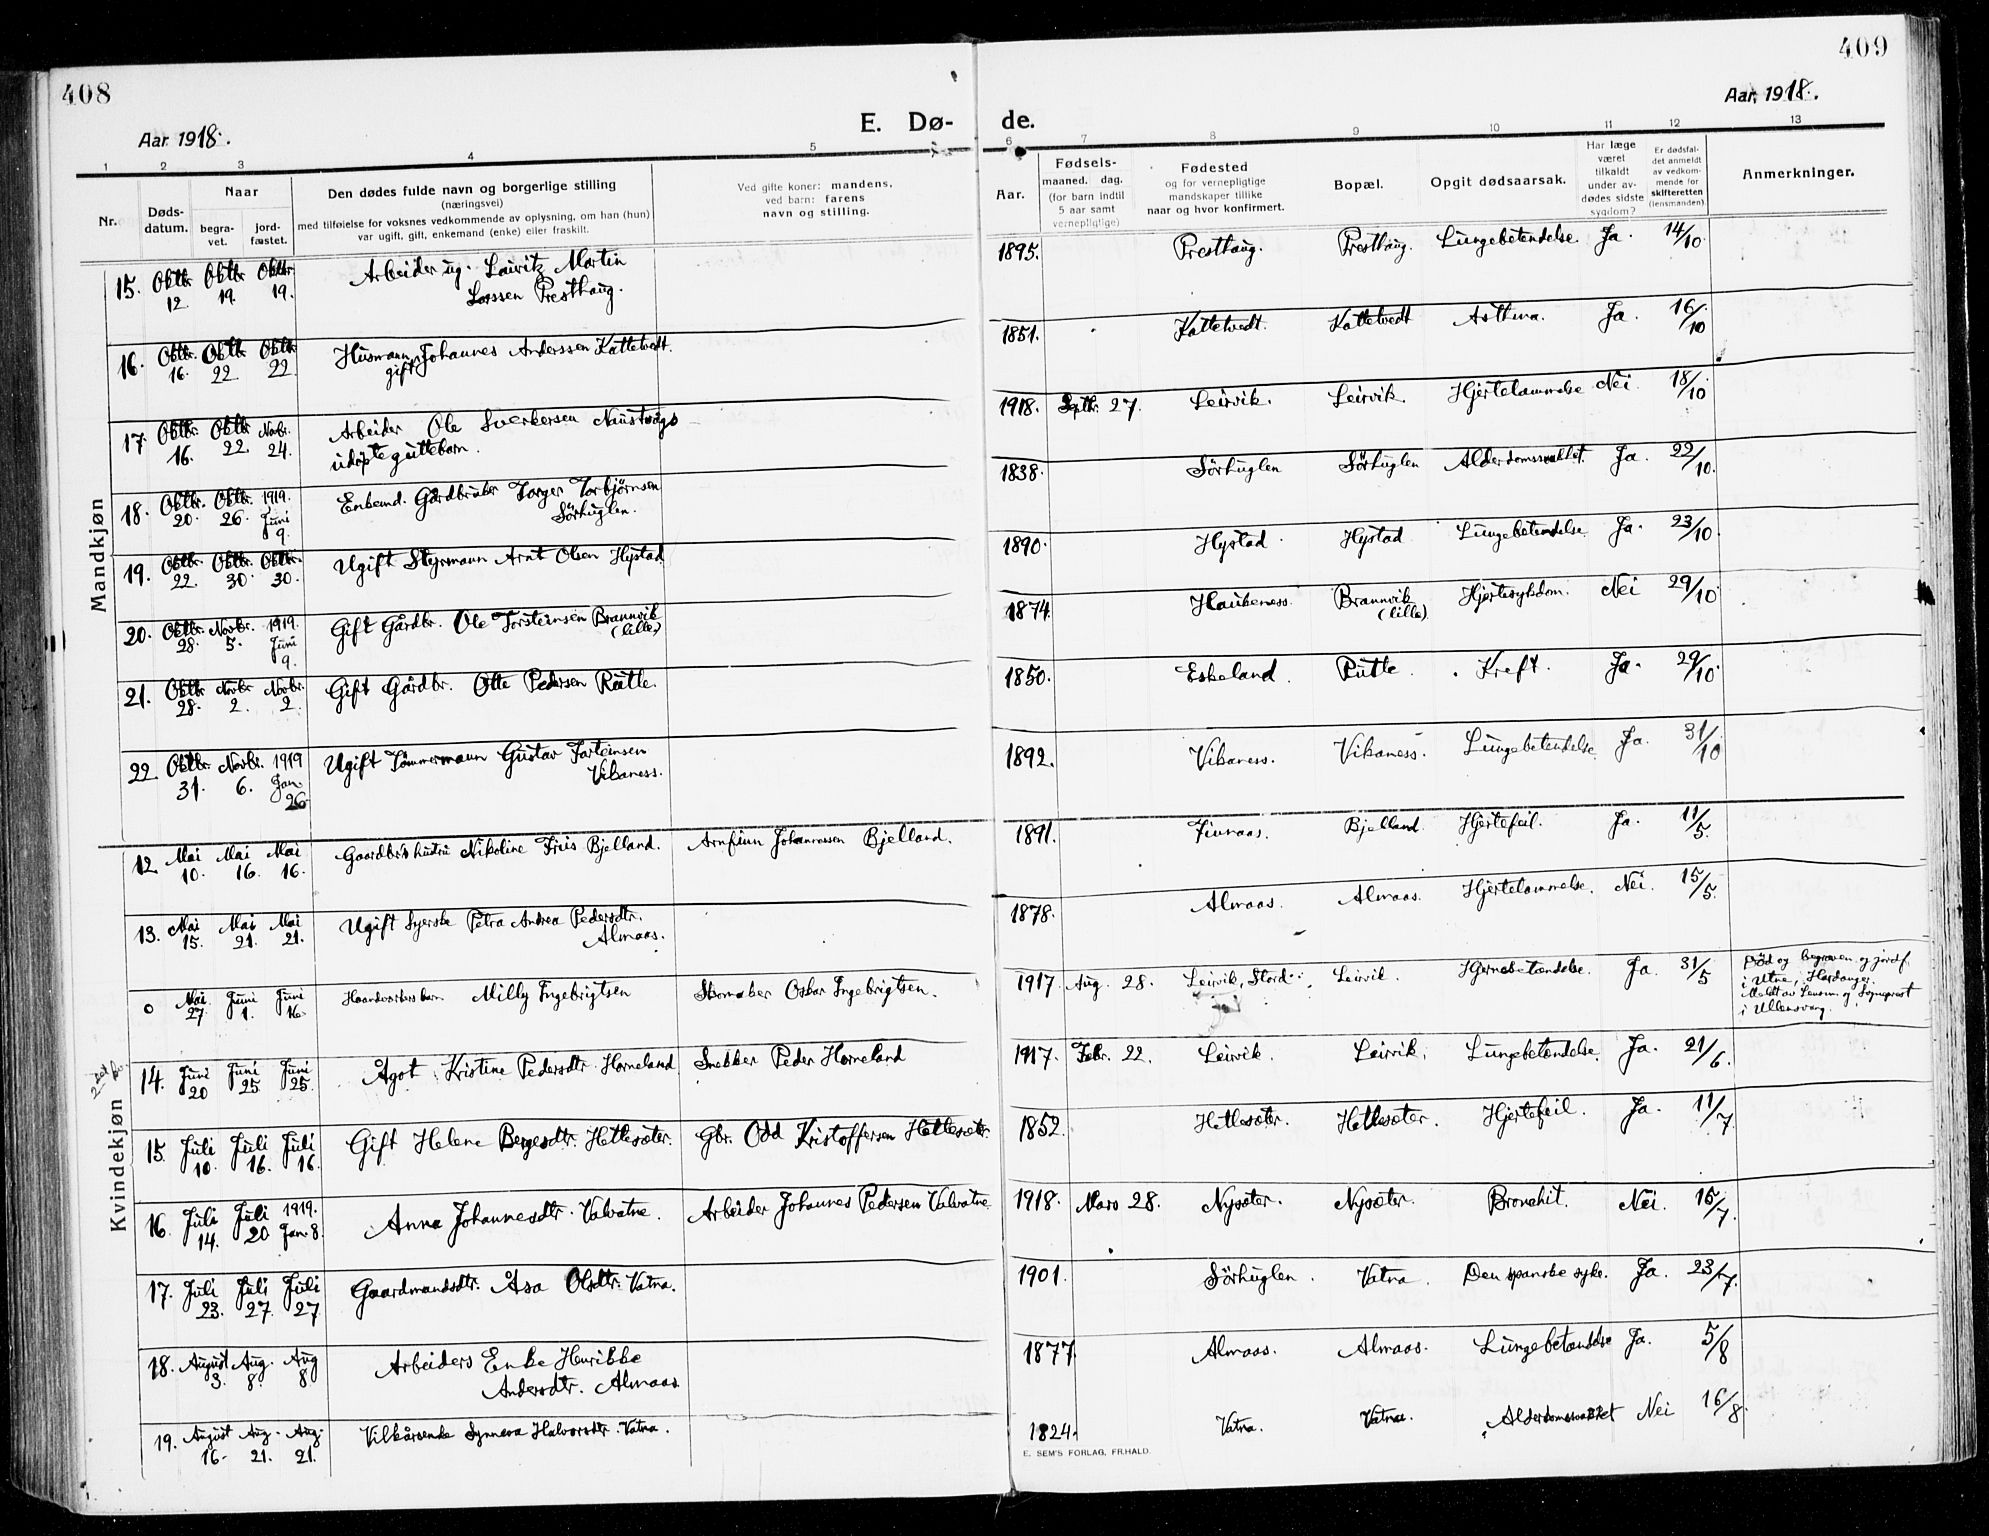 408
409
Aar 1918.
E. Dø-
de.
Aar 1918.
1 2 3 4 5 6 7 8 9 10 11 12 13
Nr.
Døds-
datum.
Naar
begra-
vet.
jord-
fæstet.
Den dødes fulde navn og borgerlige stilling
(næringsvei)
med tilføielse for voksnes vedkommende av oplysning, om han (hun)
var ugift, gift, enkemand (enke) eller fraskilt.
Ved gifte koner: mandens,
ved barn: farens
navn og stilling.
Aar.
Fødsels-
maaned. dag.
(for barn indtil
5 aar samt
vernepligtige)
Fødested
og for vernepligtige
mandskaper tillike
naar og hvor konfirmert.
Bopæl.
Opgit dødsaarsak.
Har læge
været
tilkaldt
under av-
dødes sidste
sygdom?
Er dødsfal-
det anmeldt
av vedkom-
mende før
skifteretten
(lensmanden).
Anmerkninger.
Mandkjøn
15. Oktbr. Oktbr. Oktbr. Arbeider ug. Lauritz Martin 1895. Presthaug. Presthaug. Lungebetendelse. Ja. 14/10.
12. 19. 19. Larssen Presthaug.
16. Oktbr. Oktbr. Oktbr. Husmann Johannes Anderssen Kattetvedt. 1851. Kattetvedt. Kattetvedt Asthma. Ja. 16/10
16. 22. 22 gift
17. Oktbr. Oktbr. Novbr. Arbeider Ole Sverkersen Naustvågs 1918. Septbr. 27. Leirvik. Leirvik. Hjertelammelse Nei. 18/10
16. 22. 24. udøpte guttebarn.
18. Oktbr. Oktbr. 1919. Enkemd. Gårdbruker Torger Torbjørnsen 1838. Sörhuglen Sörhuglen Alderdomssvakhet. Ja. 22/10.
20. 26. Juni Sörhuglen.
9.
19. Oktbr. Oktbr. Oktbr. Ugift Styrmann Arnt Olsen Hystad 1890. Hystad. Hystad Lungebetendelse. Ja. 23/10.
22. 30. 30.
20. Oktbr. Novbr. 1919. Gift Gårdbr. Ole Torsteinsen Brannvik 1874. Haukeness. Brannvik Hjertesykdom. Nei 29/10.
28. 5. Juni (lille) (lille).
9.
21. Oktbr. Novbr. Novbr. Gift Gårdbr. Otte Pedersen Rutle. 1850. Eskeland. Rutle. Kreft. Ja. 29/10.
28. 2. 2.
22. Oktbr. Novbr. 1919 Ugift Tömmermann Gustav Torteinsen 1892. Vikaness. Vikaness. Lungebetendelse Ja. 31/10
31. 6. Jan. Vikaness.
26.
Kvindekjøn
12. Mai Mai Mai Gaardbr's hustru Nikoline Friis Bjelland. Arnfinn Johannessen Bjelland. 1891. Bjelland. Hjertefeil. Ja. 11/5.
10. 16. 16.
13. Mai Mai Mai Ugift Syerske Petra Andrea Pedersdtr. 1878. Almaas. Almaas. Hjertelammelse. Nei. 15/5.
15. 21. 21. Almaas.
0 Mai Juni Juni Haandverkers barn Milly Ingebrigtsen Skomaker Oskar Ingebrigtsen. 1917. Aug. 28. Leirvik, Stord. Leirvik. Hjernebetændelse. Ja. 31/5
27. 1. 16. Död og begraven og jordf.
i Utne, Hardanger.
Meldt av Lensm. og Sogneprest
i Ullensvang.
14. Juni Juni Juni Ågot Kristine Pedersdtr. Horneland Snekker Peder Horneland 1917. Febr. 22. Leirvik. Leirvik. Lungebetændelse. Ja. 21/6.
20 25 25.
15. Juli Juli Juli Gift Helene Bergesdtr. Hetlesæter. Gbr. Odd Kristoffersen Hetlesætr. 1852. Hetlesæter. Hetlesæter. Hjertefeil. Ja. 11/7.
10. 16. 16.
16. Juli Juli 1919. Anna Johannesdtr. Valvatne. Arbeider Johannes Pedersen Valvatne 1918. Mars 28. Nysæter. Nysæter. Bronchit. Nei. 15/7.
14. 20 Jan. 8.
17. Juli Juli Juli Gaardmandsdtr. Åsa Olsdtr. Vatna. 1901. Sörhuglen. Vatna. Den spanske syke. Ja. 23/7.
23. 27. 27
18. August Aug. Aug Arbeiders Enke Henrikke 1877. Almaas. Almaas. Lungebetændelse Ja. 5/8
3. 8. 8. Andersdtr. Almaas
19. August Aug. Aug. Vilkårsenke Synneva Halvorsdtr. Vatna. 1824. Vatna. Vatna. Alderdomssvakhet Nei 16/8.
16. 21. 21.
E. SEM'S FORLAG, FR.HALD.